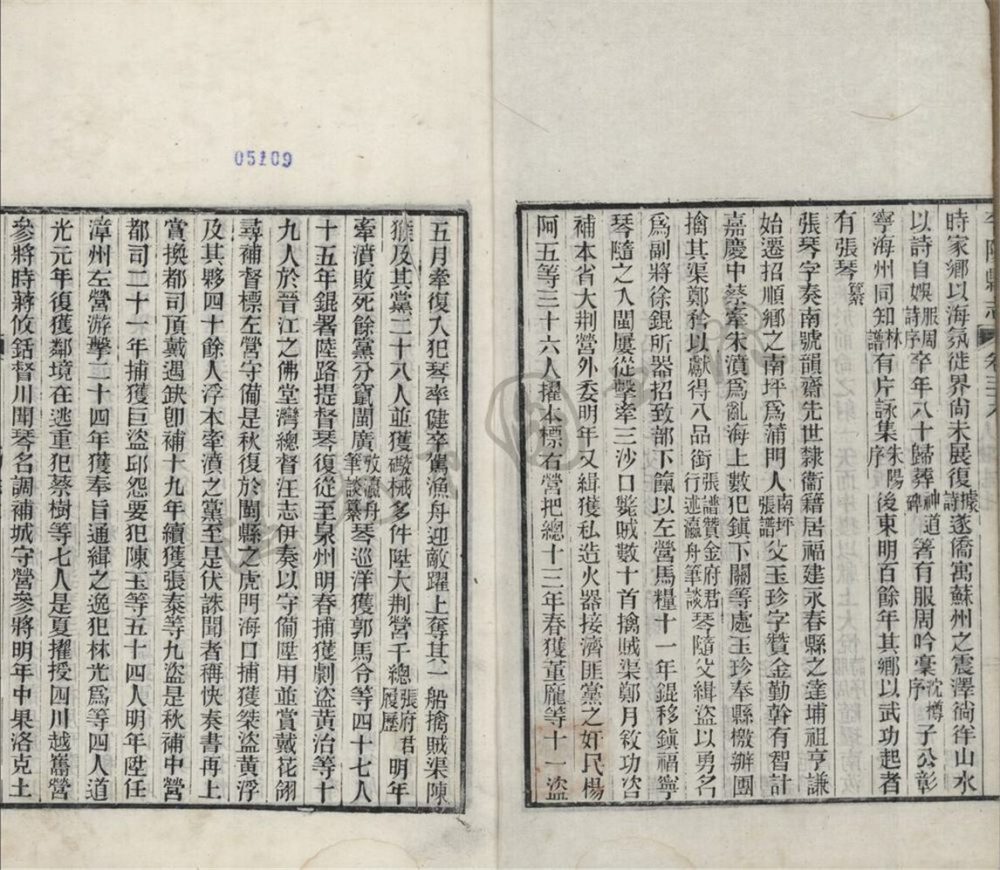 時家鄉以海氛徙界尚未展復據詩遂僑寓蘇州之震澤徜徉山水
以詩自娛服周詩序卒年八十歸葬神道碑箸有服周吟稾沈樽序子公彰
寧海州同知林譜有片詠集朱陽序後東明百餘年其鄉以武功起者
有張琴纂
張琴字奏南號韻齋先世隸衞籍居福建永春縣之達埔祖亨謙
始遷招順鄉之南坪爲蒲門人南坪張譜父玉珍字贊金勤幹有智計
嘉慶中蔡牽朱濆爲亂海上數犯鎮下關等處玉珍奉縣檄辦團
擒其渠鄭矜以獻得八品銜張譜贊金府君行述瀛舟筆談琴隨父緝盜以勇名
爲副將徐錕所器招致部下餼以左營馬糧十一年錕移鎮福寧
琴隨之入閩屢從擊牽三沙口斃賊數十首擒賊渠鄭月敘功咨
補本省大荆營外委明年又緝獲私造火器接濟匪黨之奸民楊
阿五等三十六人擢本標右營把總十三年春獲董龐等十一盜
05109
五月牽復入犯琴率健卒駕漁舟迎敵躍上奪其一船擒賊渠陳
猴及其黨二十八人並獲礮械多件陞大荆營千總張府君履歷明年
牽濆敗死餘黨分竄閩廣攷瀛舟筆談纂琴巡洋獲郭馬令等四十七人
十五年錕署陸路提督琴復從至泉州明春捕獲劇盜黃治等十
九人於晉江之佛堂灣總督汪志伊奏以守備陞用並賞戴花翎
尋補督標左營守備是秋復於閩縣之虎門海口捕獲桀盜黃浮
及其夥四十餘人浮本牽濆之黨至是伏誅聞者稱快奏書再上
賞換都司頂戴遇缺卽補十九年續獲張泰等九盜是秋補中營
都司二十一年捕獲巨盜邱怨要犯陳玉等五十四人明年陞任
漳州左營游擊二十四年獲奉旨通緝之逸犯林光爲等四人道
光元年復獲鄰境在逃重犯蔡樹等七人是夏擢授四川越巂營
參將時蔣攸銛督川聞琴名調補城守營參將明年中果洛克土